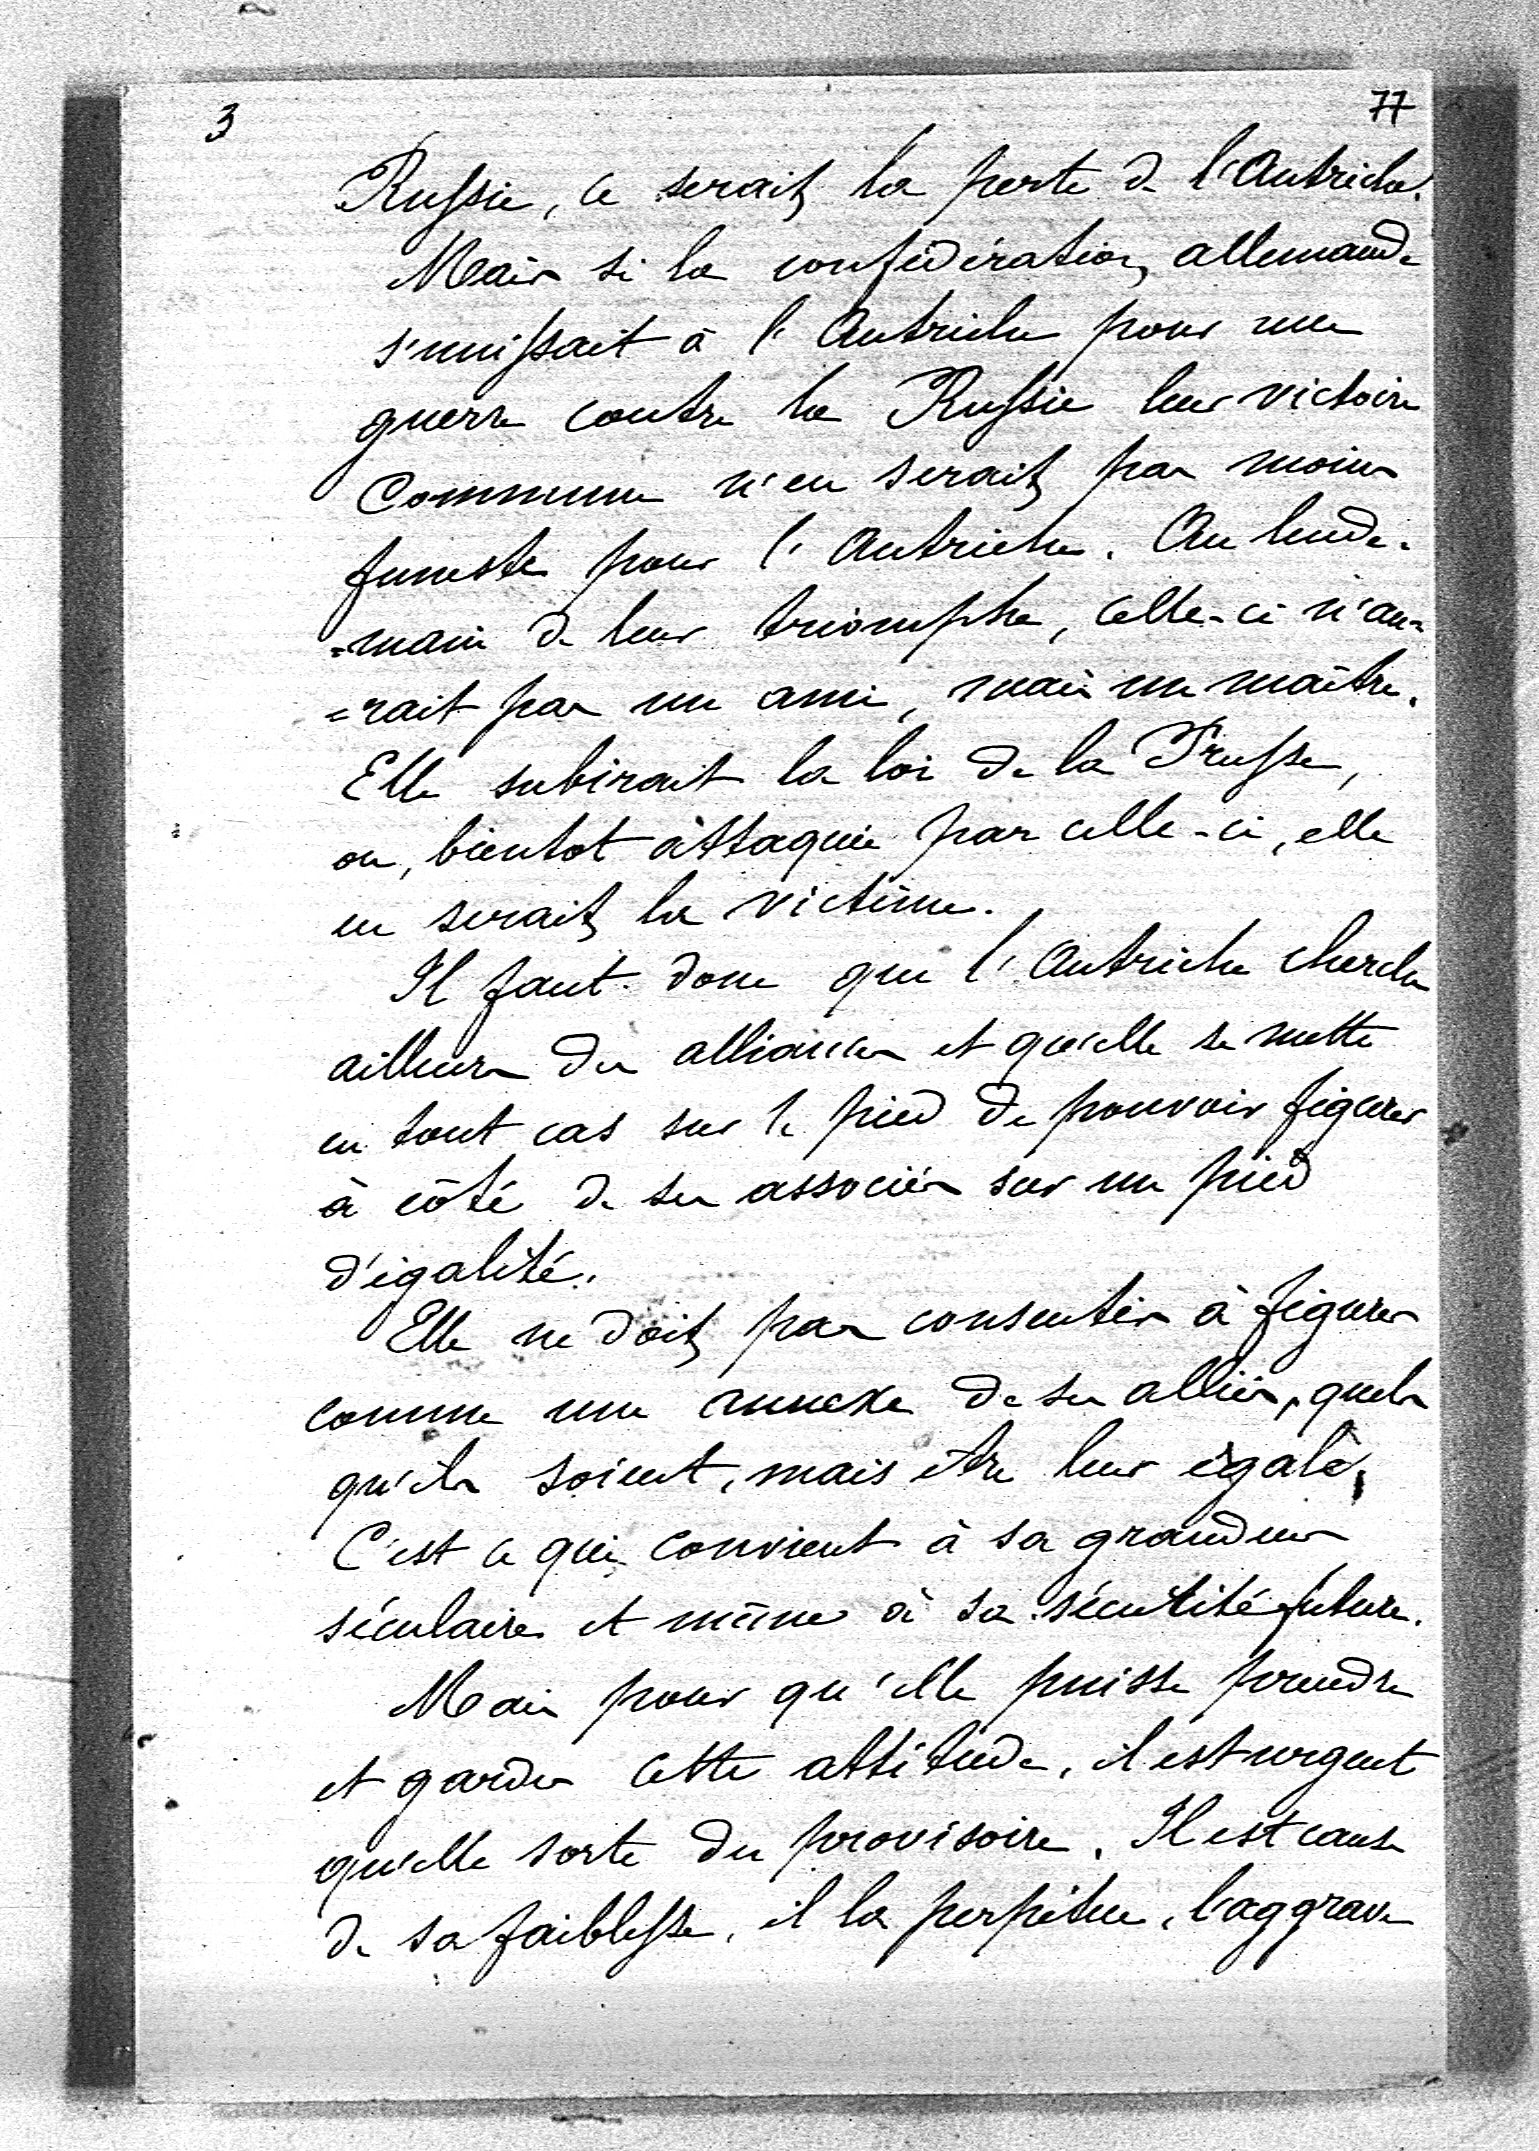 3
77
Russie, ce serait la perte de l'Autriche.
Mais si la confédération allemande
s'unissait à l'Autriche pour une
guerre contre la Russie leur victoire
Commune n'en serait pas moins
funeste pour l'Autriche. Au lende=
=main de leur triomphe, celle-ci n'au=
=rait pas un ami, mais un maître.
Elle subirait la loi de la Prusse,
ou, bientot attaquée par celle-ci, elle
en serait la victime.
Il faut donc que l'Autriche cherche
ailleurs des alliances et qu'elle se mette
en tout cas sur le pied de pouvoir figurer
à côté de ses associés sur un pied
d'égalité.
Elle ne doit pas consentir à figurer
comme une annexe de ses alliés, quels
qu'ils soient, mais être leur égale,
C'est ce qui convient à sa grandeur
séculaire et même à sa sécurité future.
Mais pour qu'elle puisse prendre
et garder cette attitude, il est urgent
qu'elle sorte du provisoire. Il est cause
de sa faiblesse, il la perpétue, l'aggrave